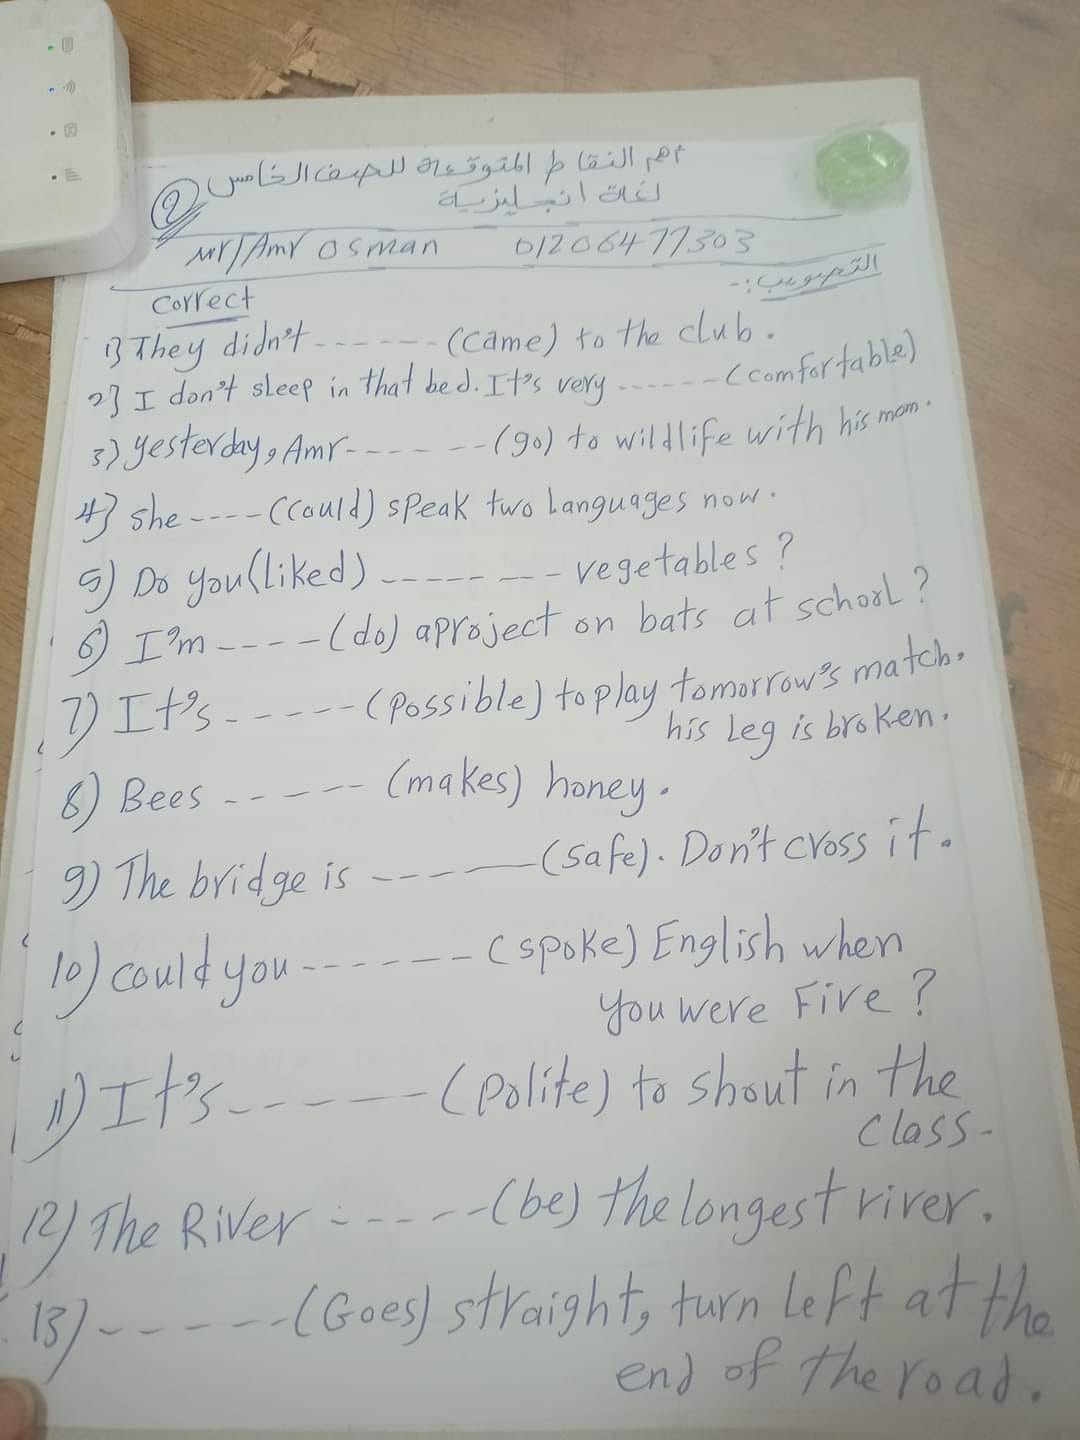 أهم النقاط المتوقعة للصف الخامس
لغة انجليزية
9
Mr/Amr Osman 01206477303
التصويب:-
Correct
1) They didn't ------ (came) to the club.
2) I don't sleep in that bed. It's very ------ (comfortable)
3) yesterday, Amr ------ (go) to wildlife with his mom.
4) she ---- (could) speak two languages now.
5) Do you (liked) -------- vegetables?
6) I'm ---- (do) a project on bats at school?
7) It's ------ (possible) to play tomorrow's match.
his leg is broken.
8) Bees ------ (makes) honey.
9) The bridge is ------ (safe). Don't cross it.
10) could you ------- (spoke) English when
you were Five?
11) It's ------ (polite) to shout in the
class-
12) The River ----- (be) the longest river.
13) ------ (Goes) straight, turn left at the
end of the road.